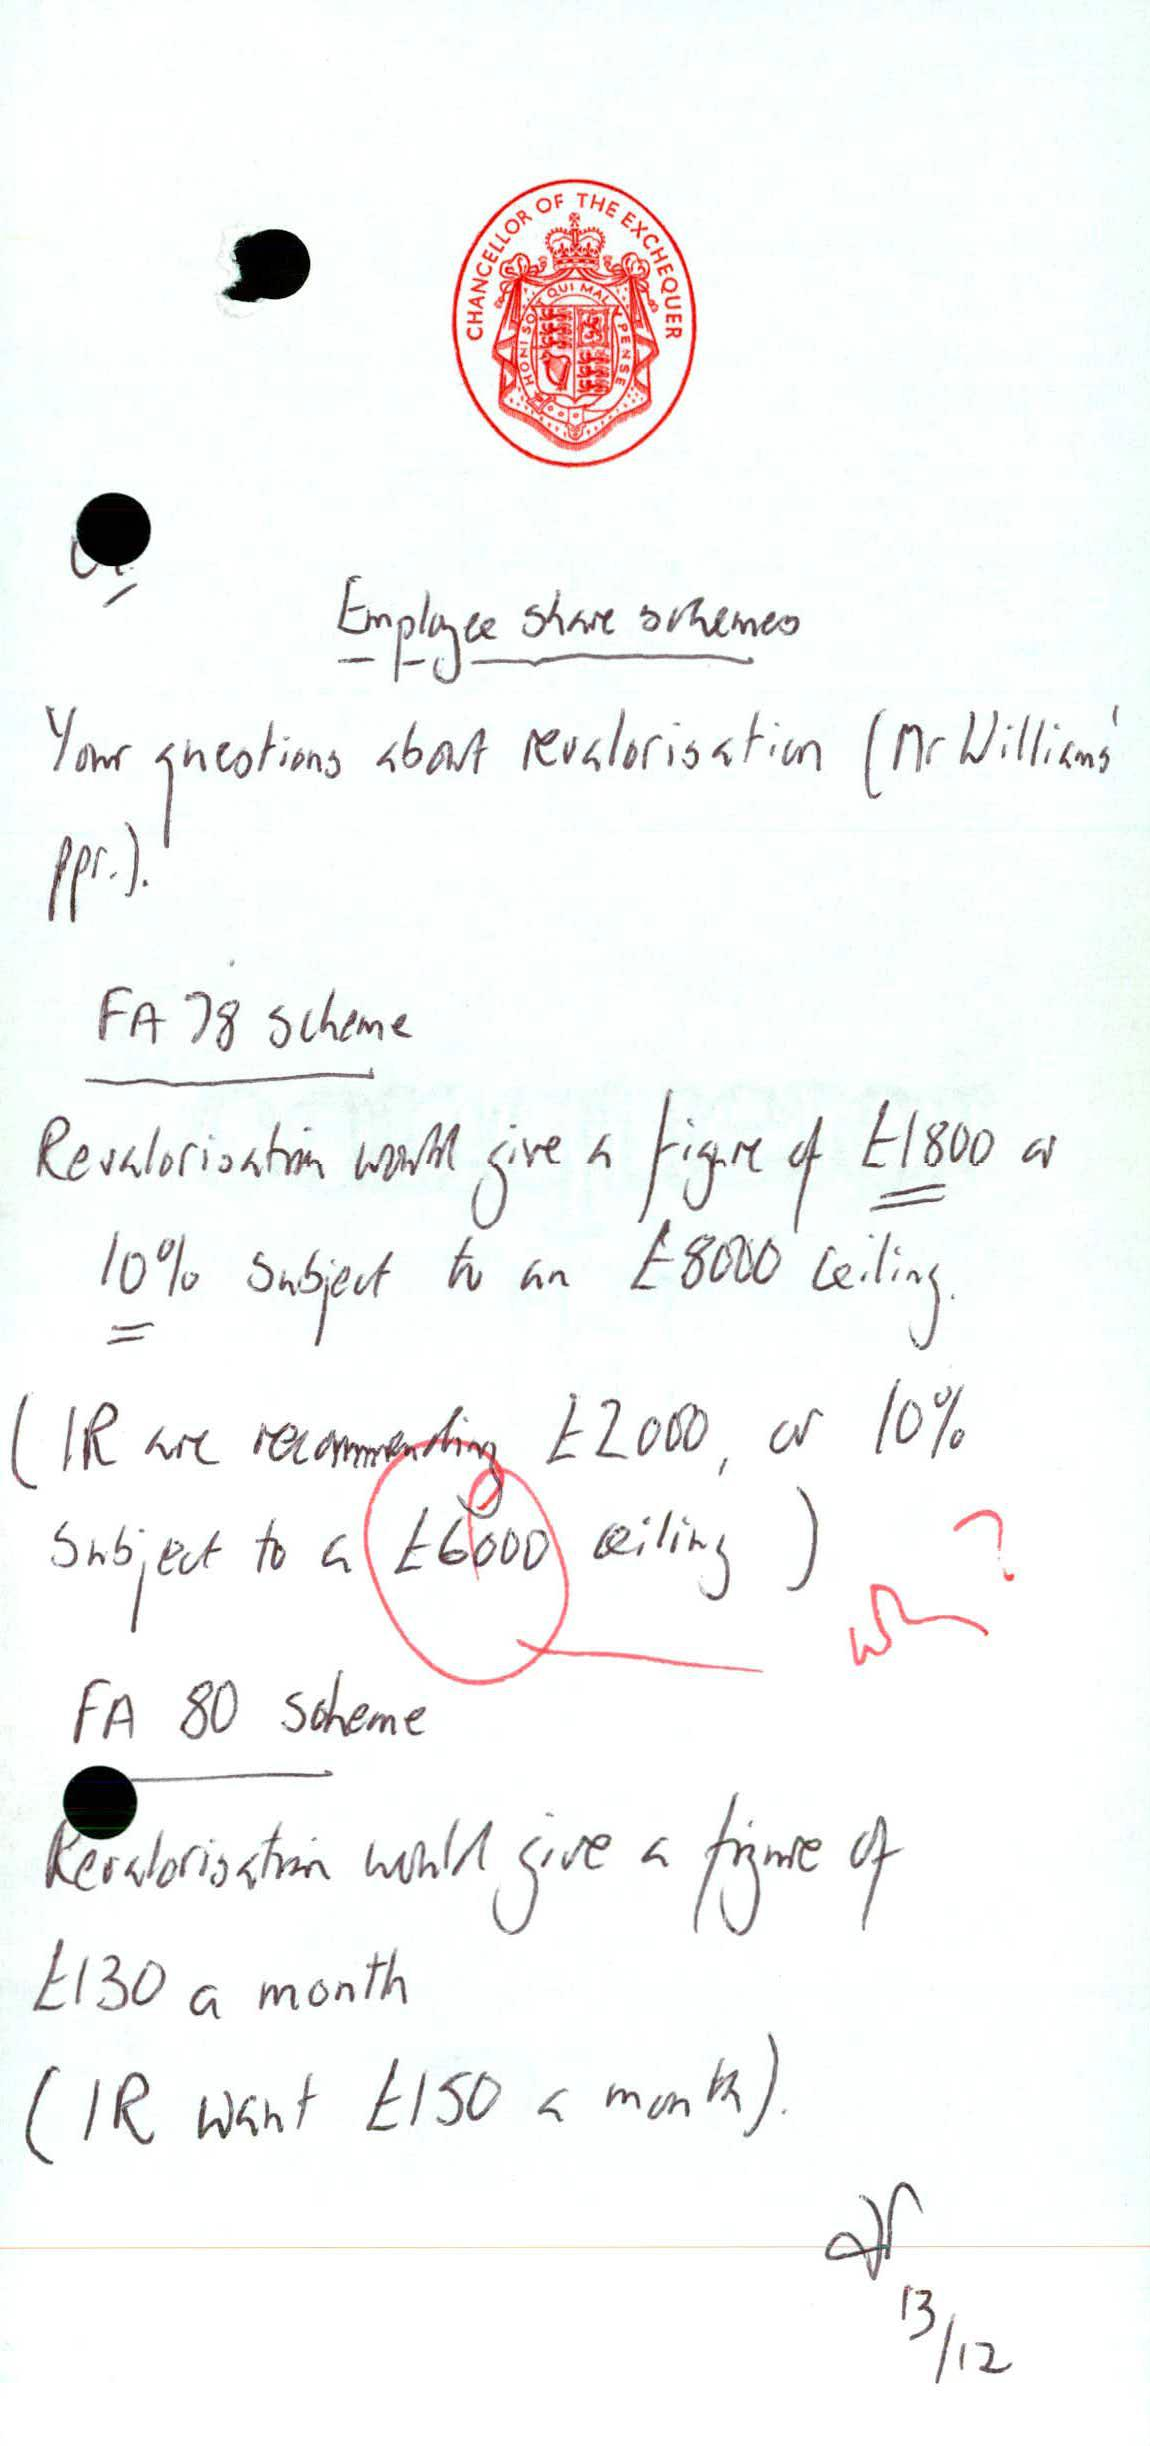 CHANCELLOR OF THE EXCHEQUER
HONI SOIT QUI MAL Y PENSE
Employee share schemes
Your questions about revalorisation (Mr Williams'
ppr.).
FA 78 scheme
Revalorisation would give a figure of £1800 or
10% subject to an £8000 ceiling.
(IR are recommending £2000, or 10%
subject to a £6000 ceiling)
why?
FA 80 scheme
Revalorisation would give a figure of
£130 a month
(IR want £150 a month).
13/12